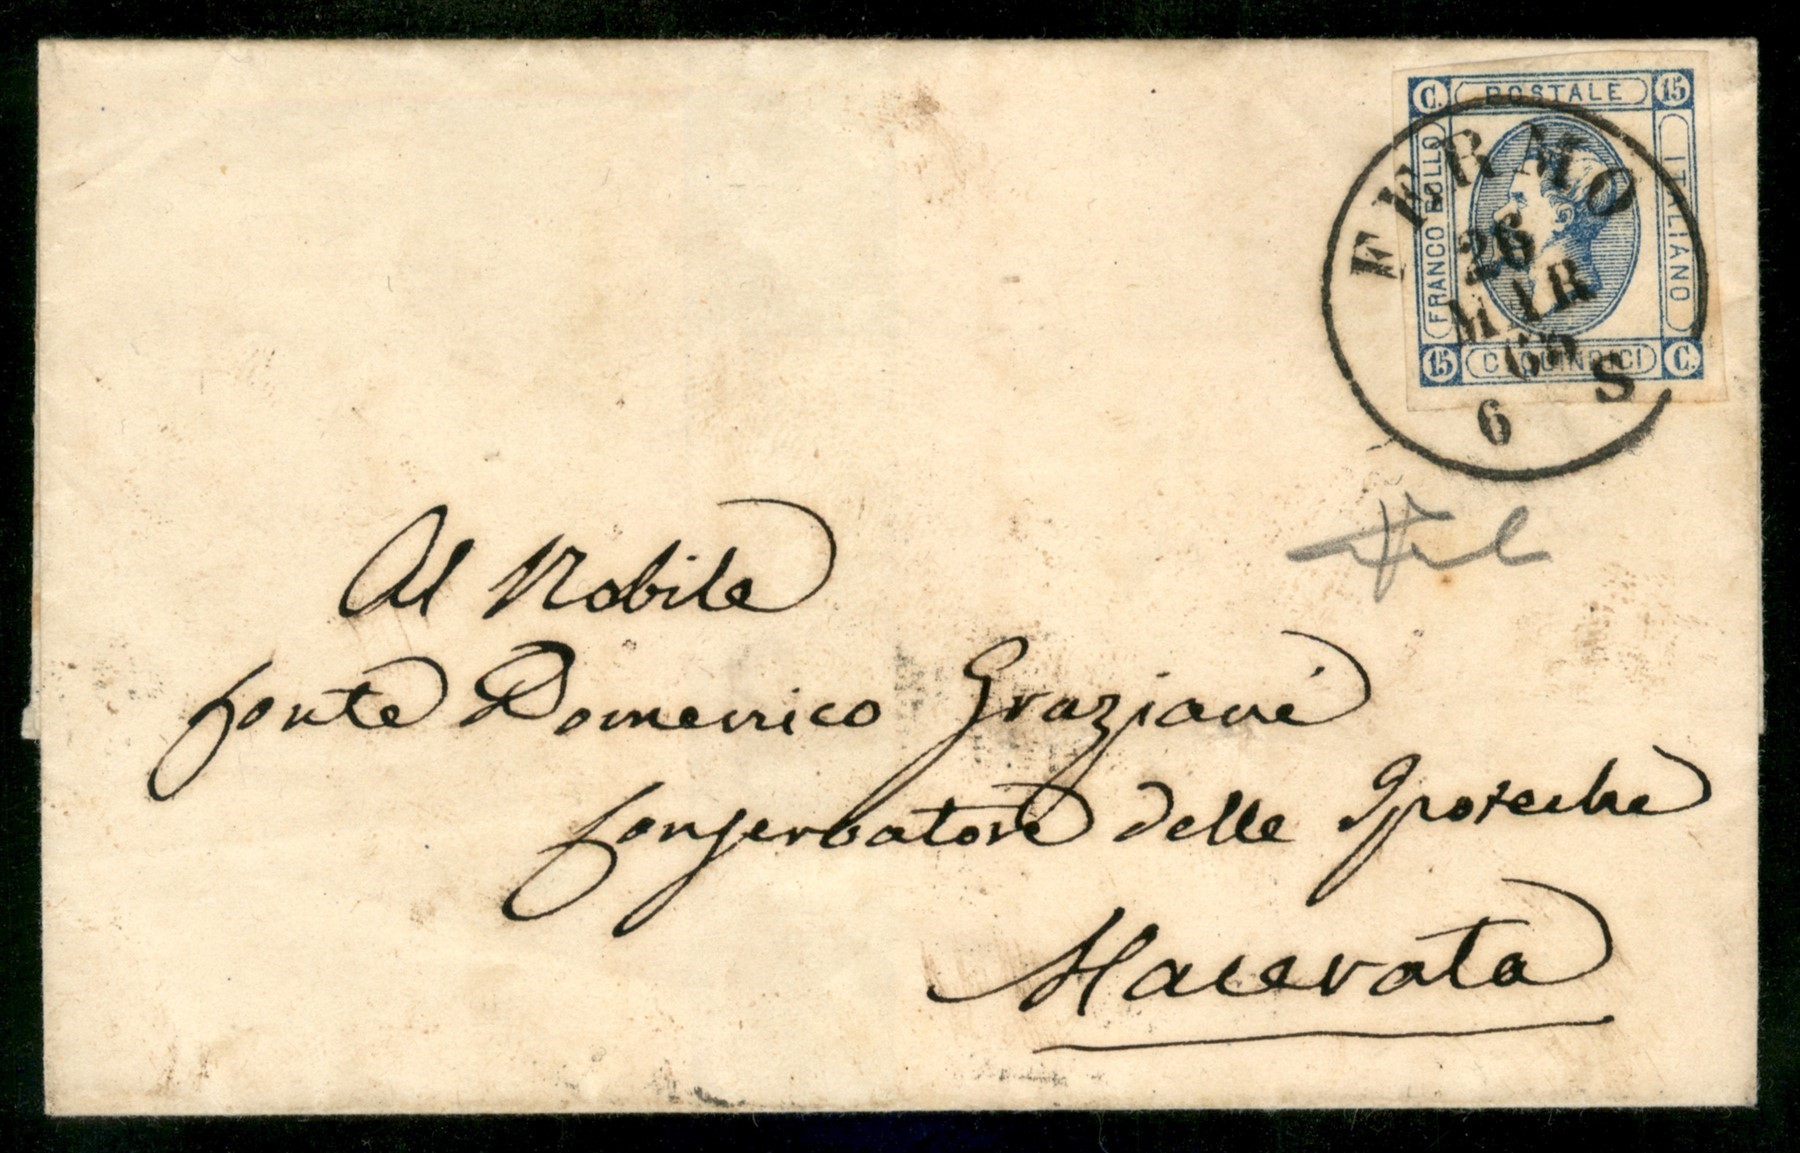 C. POSTALE 15
FRANCO BOLLO
ITALIANO
15 C. QUINDICI C.
FERMO
26
MAR
6 S
Al Nobile
Conte Domenico Graziani
Conservatore delle Ipoteche
Macerata